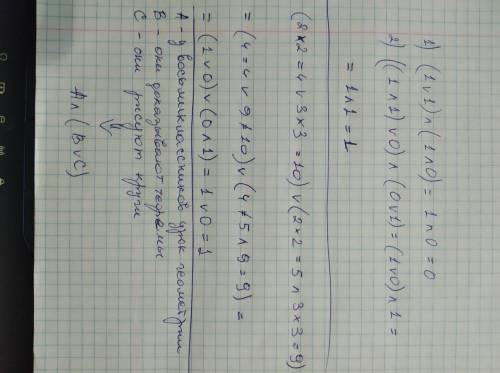 1) (1∨1)∧(1∧0) = 1∧0 = 0
2) ((1∧1)∨0)∧(0∨1) = (1∨0)∧1 =
= 1∧1 = 1
(2×2=4∨3×3=10)∨(2×2=5∧3×3=9)
= (4=4∨9≠10)∨(4≠5∧9=9) =
= (1∨0)∨(0∧1) = 1∨0 = 1
A - у восьмиклассников урок геометрии
B - они доказывают теоремы
C - они рисуют круги
A∧(B∨C)